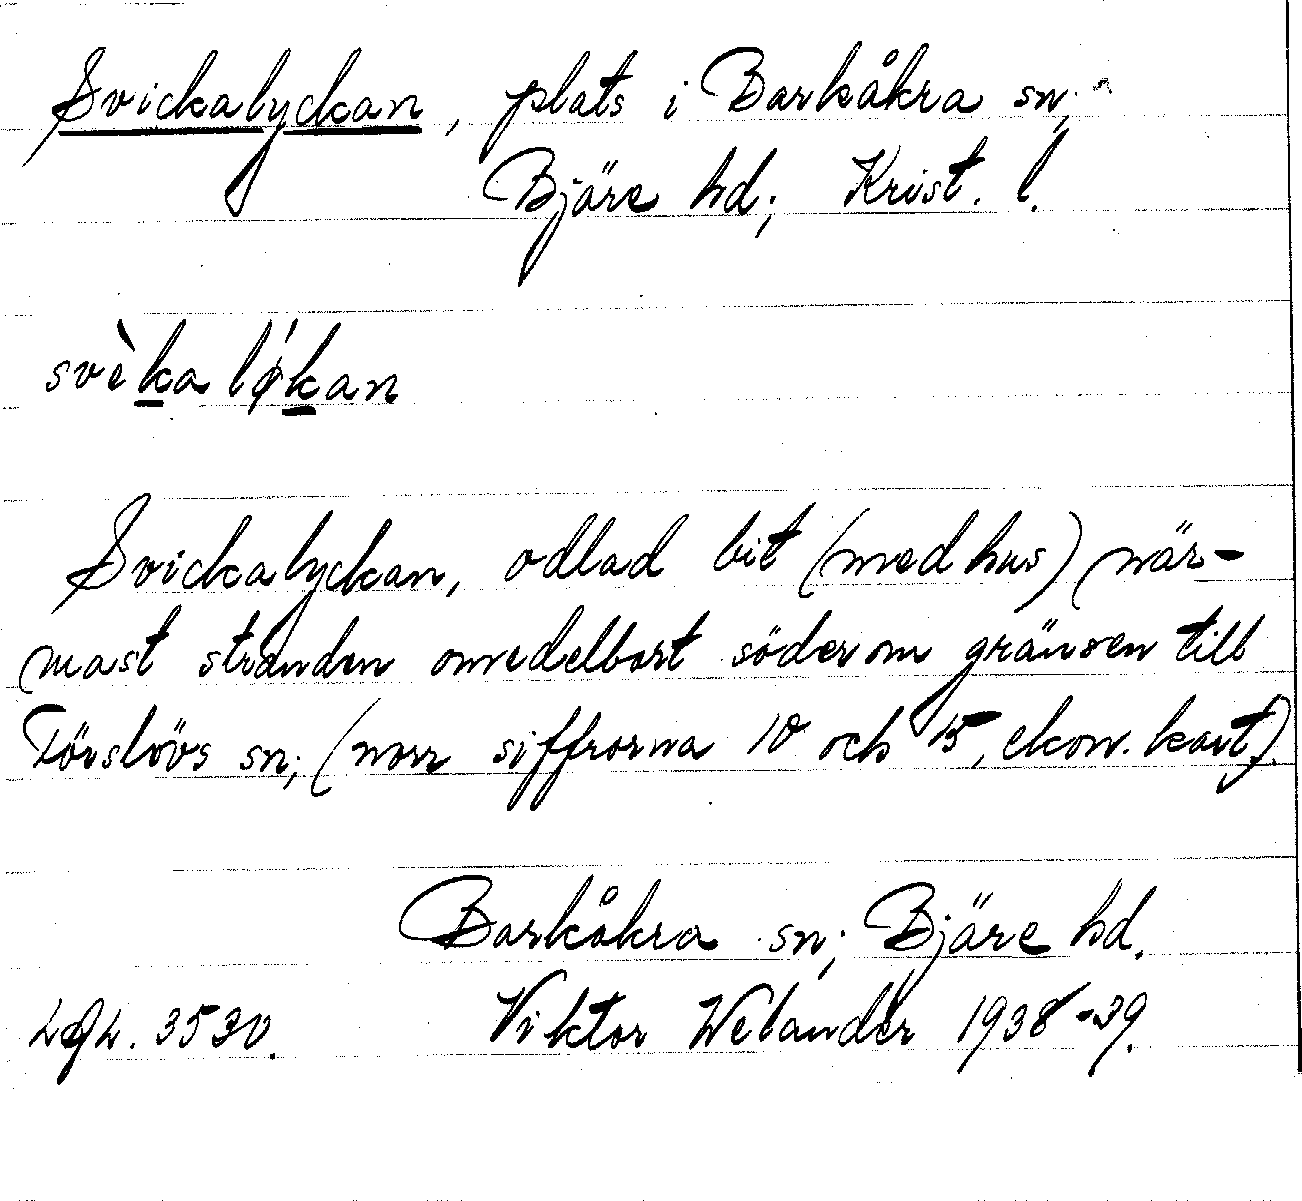 Svickalyckan, plats i Barkåkra sn;
Bjäre hd; Krist. l.
svèka lǿkan
Svickalyckan, odlad bit (med hus) när-
mast stranden omedelbart söder om gränsen till
Förslövs sn; (norr siffrorna 10 och 15, ekon. kart).
Barkåkra sn; Bjäre hd.
LgL. 3530. Viktor Welander 1938-39.